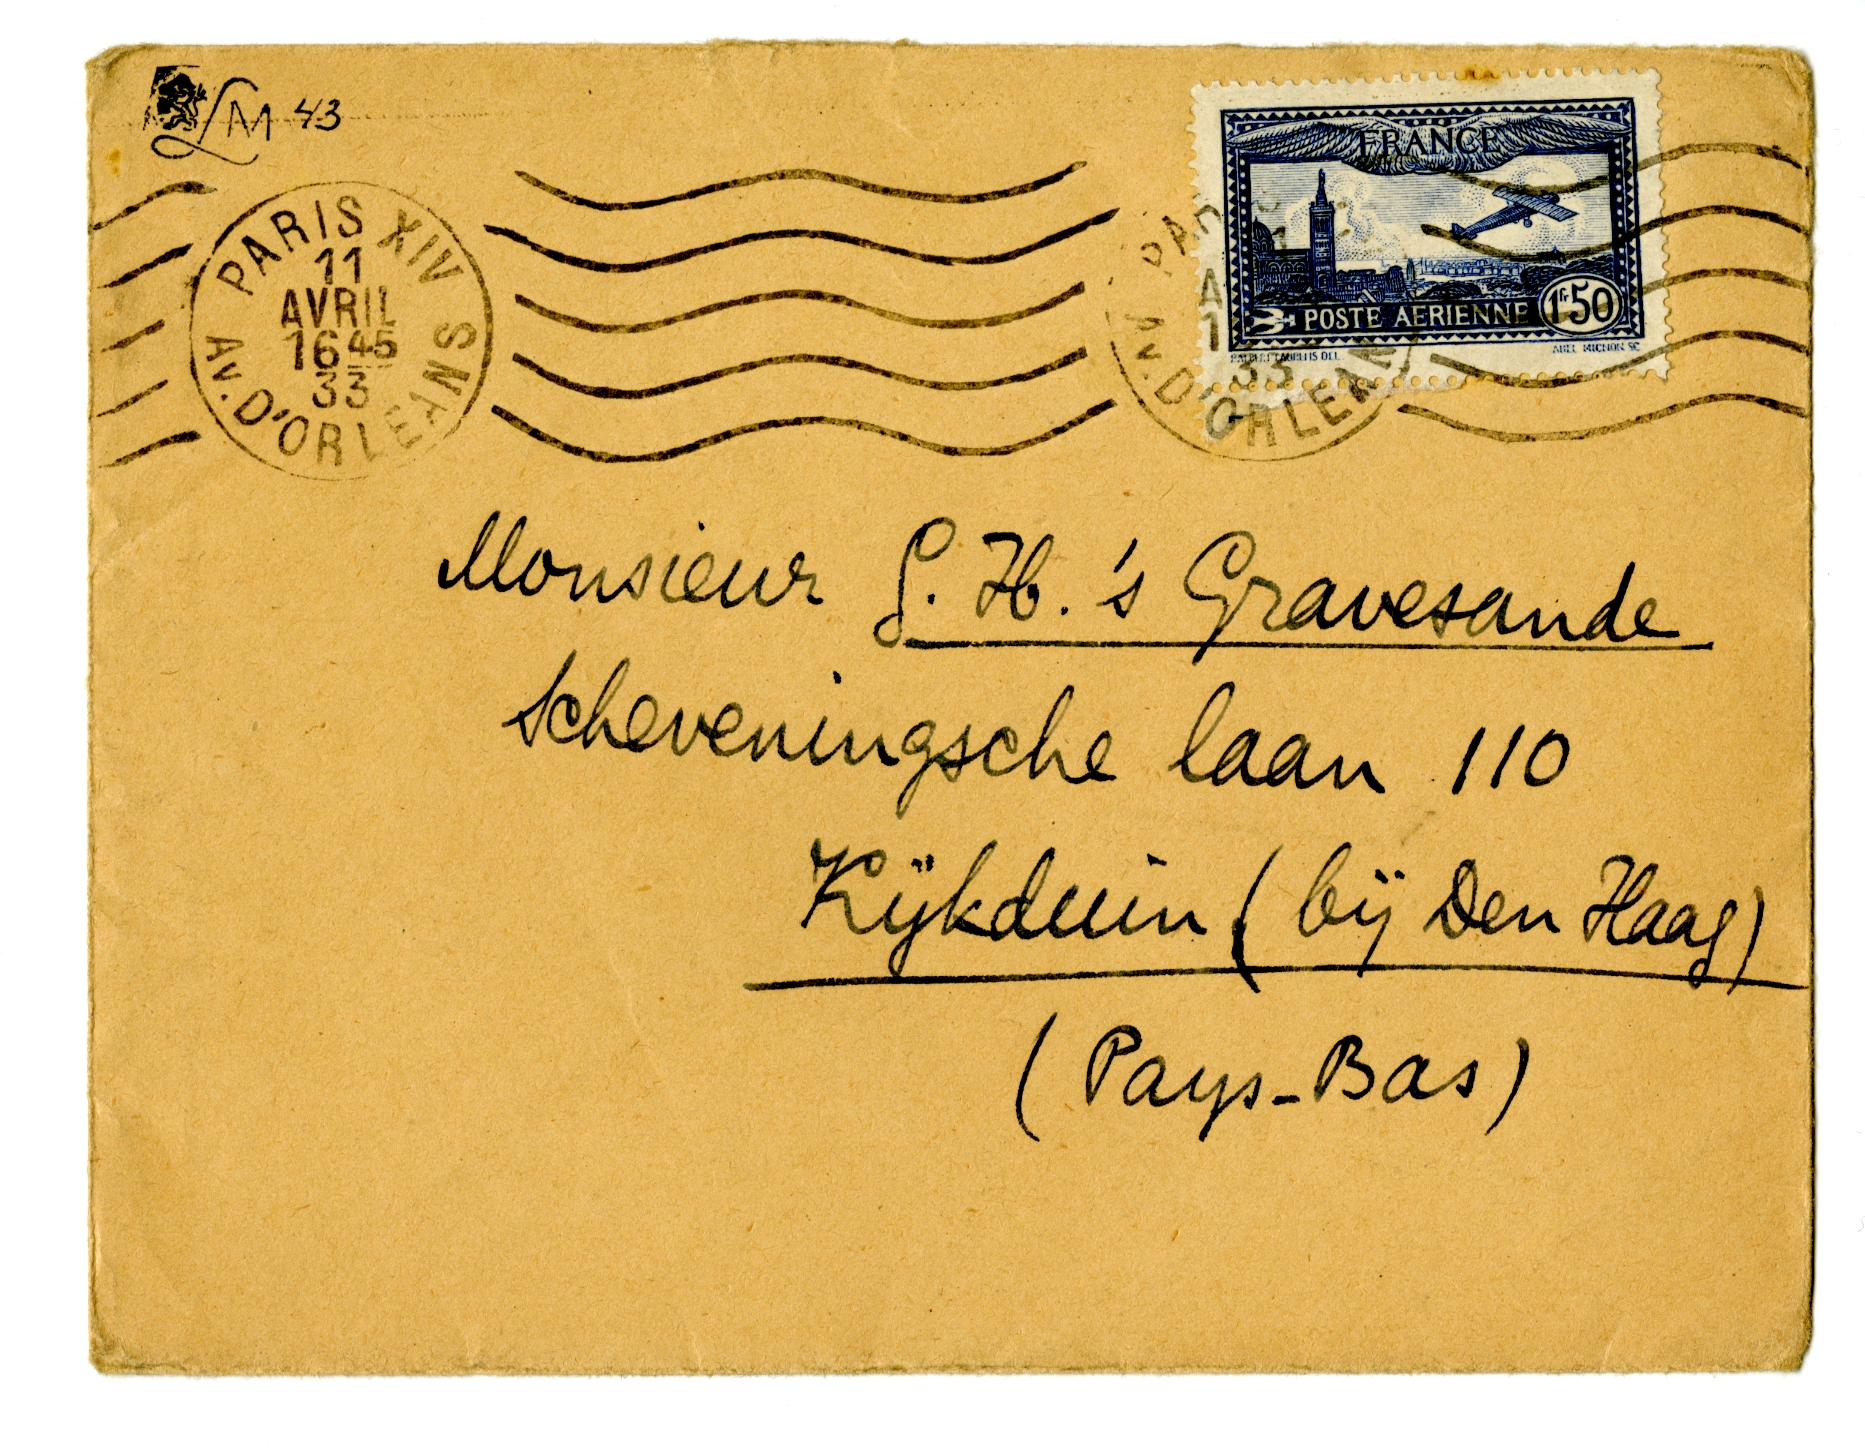 LM 43
PARIS XIV
11
AVRIL
16 45
33
AV. D'ORLEANS
FRANCE
POSTE AERIENNE 1fr50
ABEL MIGNON SC.
33
AV. D'ORLEANS
Monsieur G. H. 's Gravesande
Scheveningsche laan 110
Kijkduin (bij Den Haag)
(Pays-Bas)